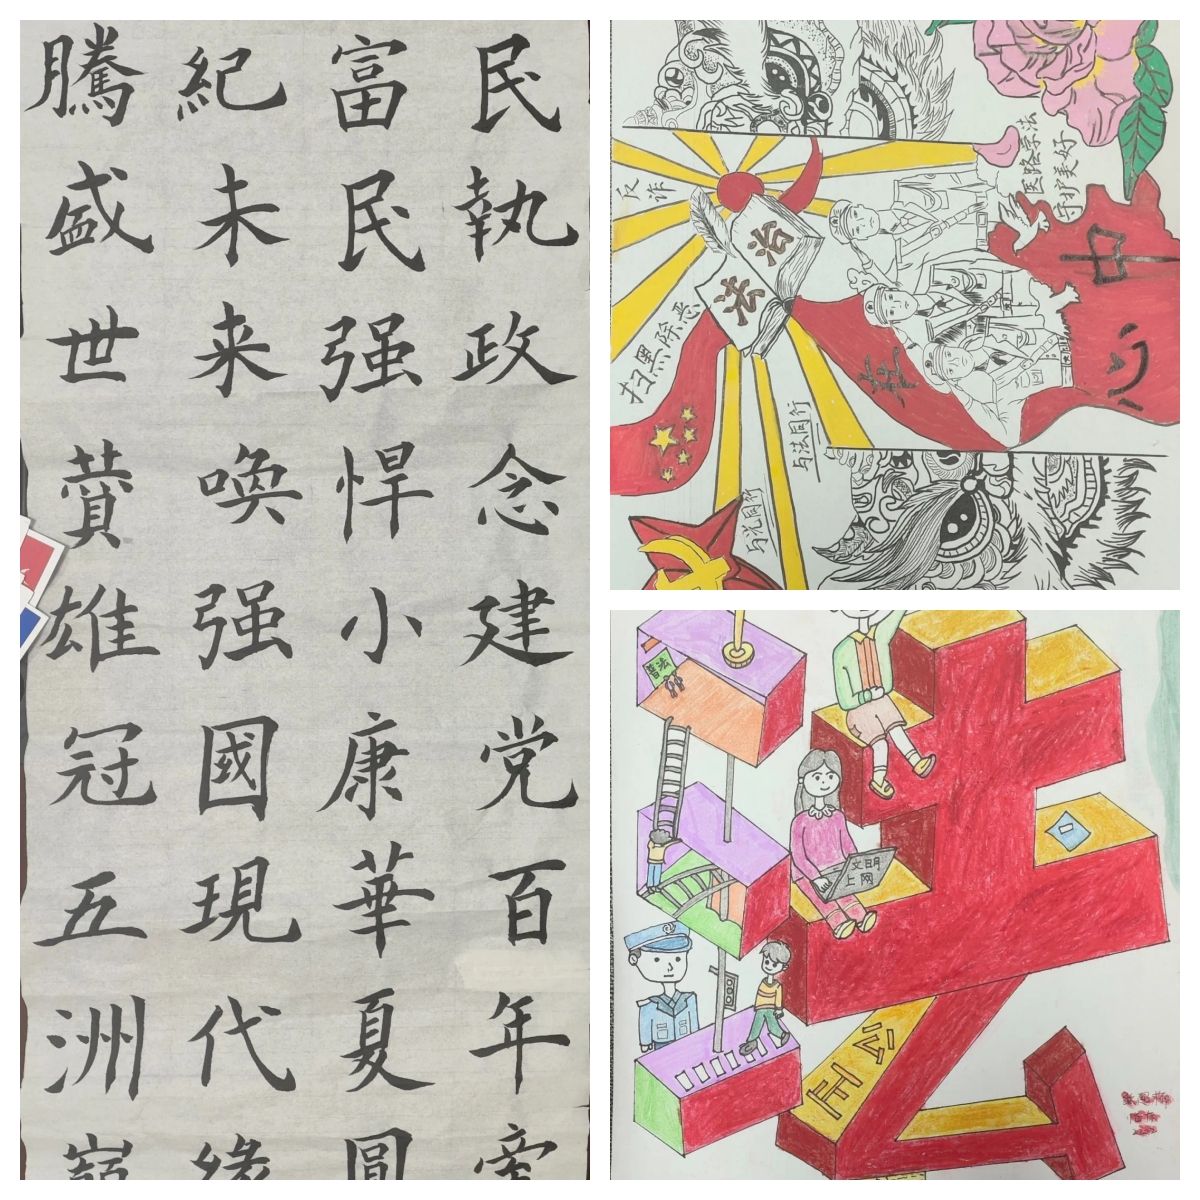 民執政念建党百年
富民强悍小康華夏圓
紀未来唤强國現代緣
騰盛世贊雄冠五洲
反诈
法治
扫黑除恶
守护美好
中
心
与法同行
与光同行
普法
文明
上网
法
公正